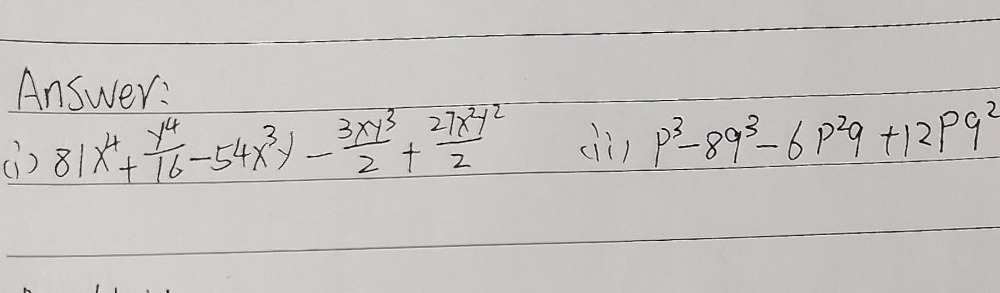 Answer:
(i) 81x⁴ + y⁴/16 - 54x³y - 3xy³/2 + 27x²y²/2 (ii) p³ - 8q³ - 6p²q + 12pq²